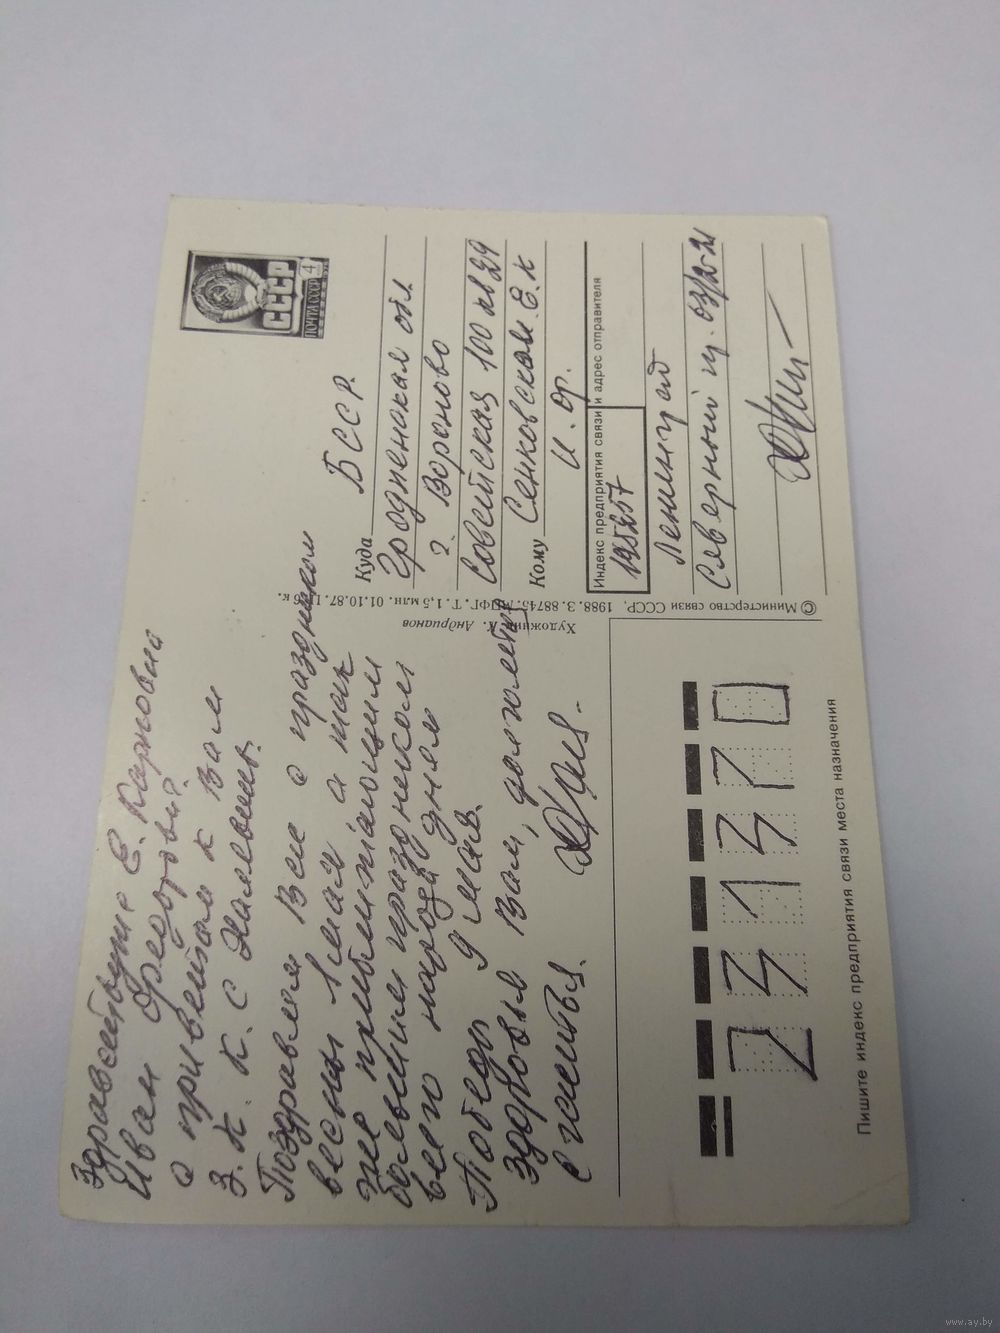 здравствуйте Е. Карповна
Иван Федорович.
с приветом к Вам
З. К. К. с
Поздравляем Вас с праздником
весны 1 мая а так
же приближающимся
большим праздником
всего народа днем
Победы 9 мая.
здоровья Вам, долголетия
счастья.
ПОЧТА СССР
4
СССР
Куда
БССР.
Гродненская обл
г. Вороново
Советская 100 кв 29
Кому Сенковским. Е. К
И. Ф.
Индекс предприятия связи и адрес отправителя
195257
Ленинград
Северный п. 63/2-21
© Министерство связи СССР, 1988. З. 88745. ППФГ. Т. 1,5 млн. 01.10.87. Ц. 6 к.
Художник К. Андрианов
231370
Пишите индекс предприятия связи места назначения
www.ay.by